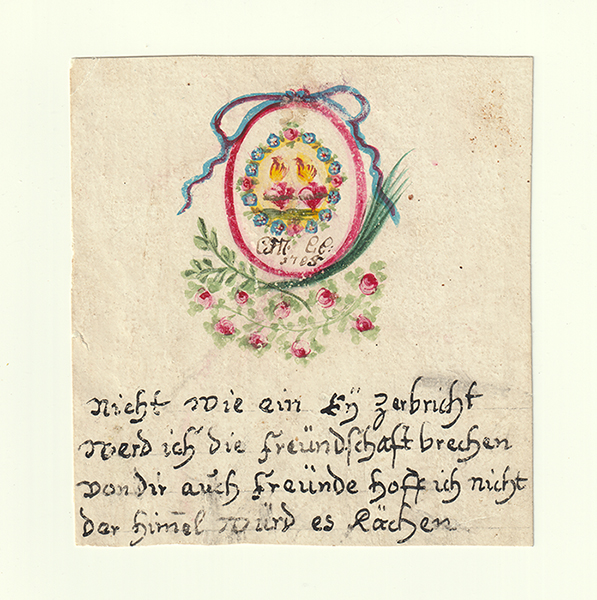 CM. CC:
1765
Nicht wie ein Eÿ zerbricht
werd ich die Freündschaft brechen
von dir auch Freünde hoff ich nicht
der him̄el würd es Rächen